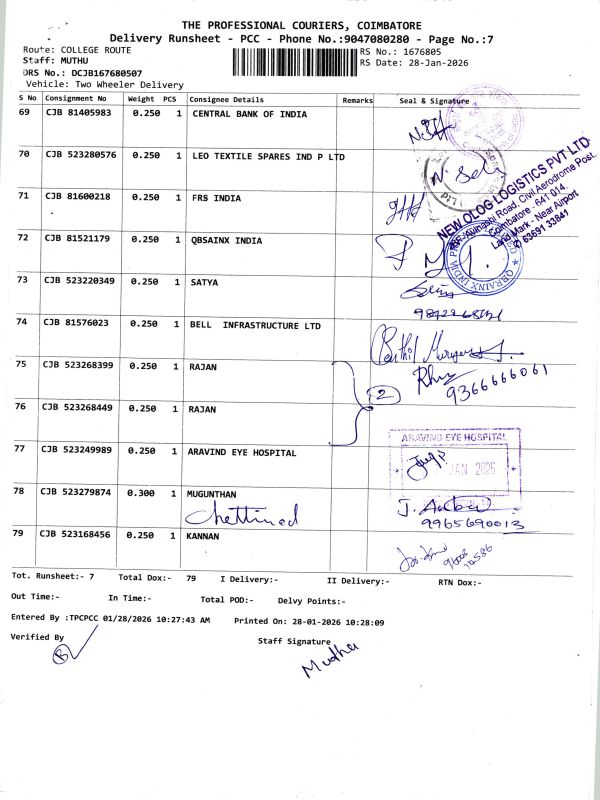 THE PROFESSIONAL COURIERS, COIMBATORE
Delivery Runsheet - PCC - Phone No.:9047080280 - Page No.:7
Route: COLLEGE ROUTE
RS No.: 1676805
Staff: MUTHU
RS Date: 28-Jan-2026
DRS No.: DCJB167680507
Vehicle: Two Wheeler Delivery
S No Consignment No Weight PCS Consignee Details Remarks Seal & Signature
69 CJB 81405983 0.250 1 CENTRAL BANK OF INDIA
70 CJB 523280576 0.250 1 LEO TEXTILE SPARES IND P LTD
71 CJB 81600218 0.250 1 FRS INDIA
NEW OLOG LOGISTICS PVT LTD
Road, Civil Aerodrome Post,
Coimbatore - 641 014.
Land Mark - Near Airport
63691 33841
72 CJB 81521179 0.250 1 QBSAINX INDIA
QBRAINX INDIA
73 CJB 523220349 0.250 1 SATYA
74 CJB 81576023 0.250 1 BELL INFRASTRUCTURE LTD
75 CJB 523268399 0.250 1 RAJAN
9366666061
2
76 CJB 523268449 0.250 1 RAJAN
77 CJB 523249989 0.250 1 ARAVIND EYE HOSPITAL
ARAVIND EYE HOSPITAL
JAN 2026
78 CJB 523279874 0.300 1 MUGUNTHAN
Chettinad
9965690013
79 CJB 523168456 0.250 1 KANNAN
Tot. Runsheet:- 7 Total Dox:- 79 I Delivery:- II Delivery:- RTN Dox:-
Out Time:- In Time:- Total POD:- Delvy Points:-
Entered By :TPCPCC 01/28/2026 10:27:43 AM Printed On: 28-01-2026 10:28:09
Verified By
Staff Signature
Muthu